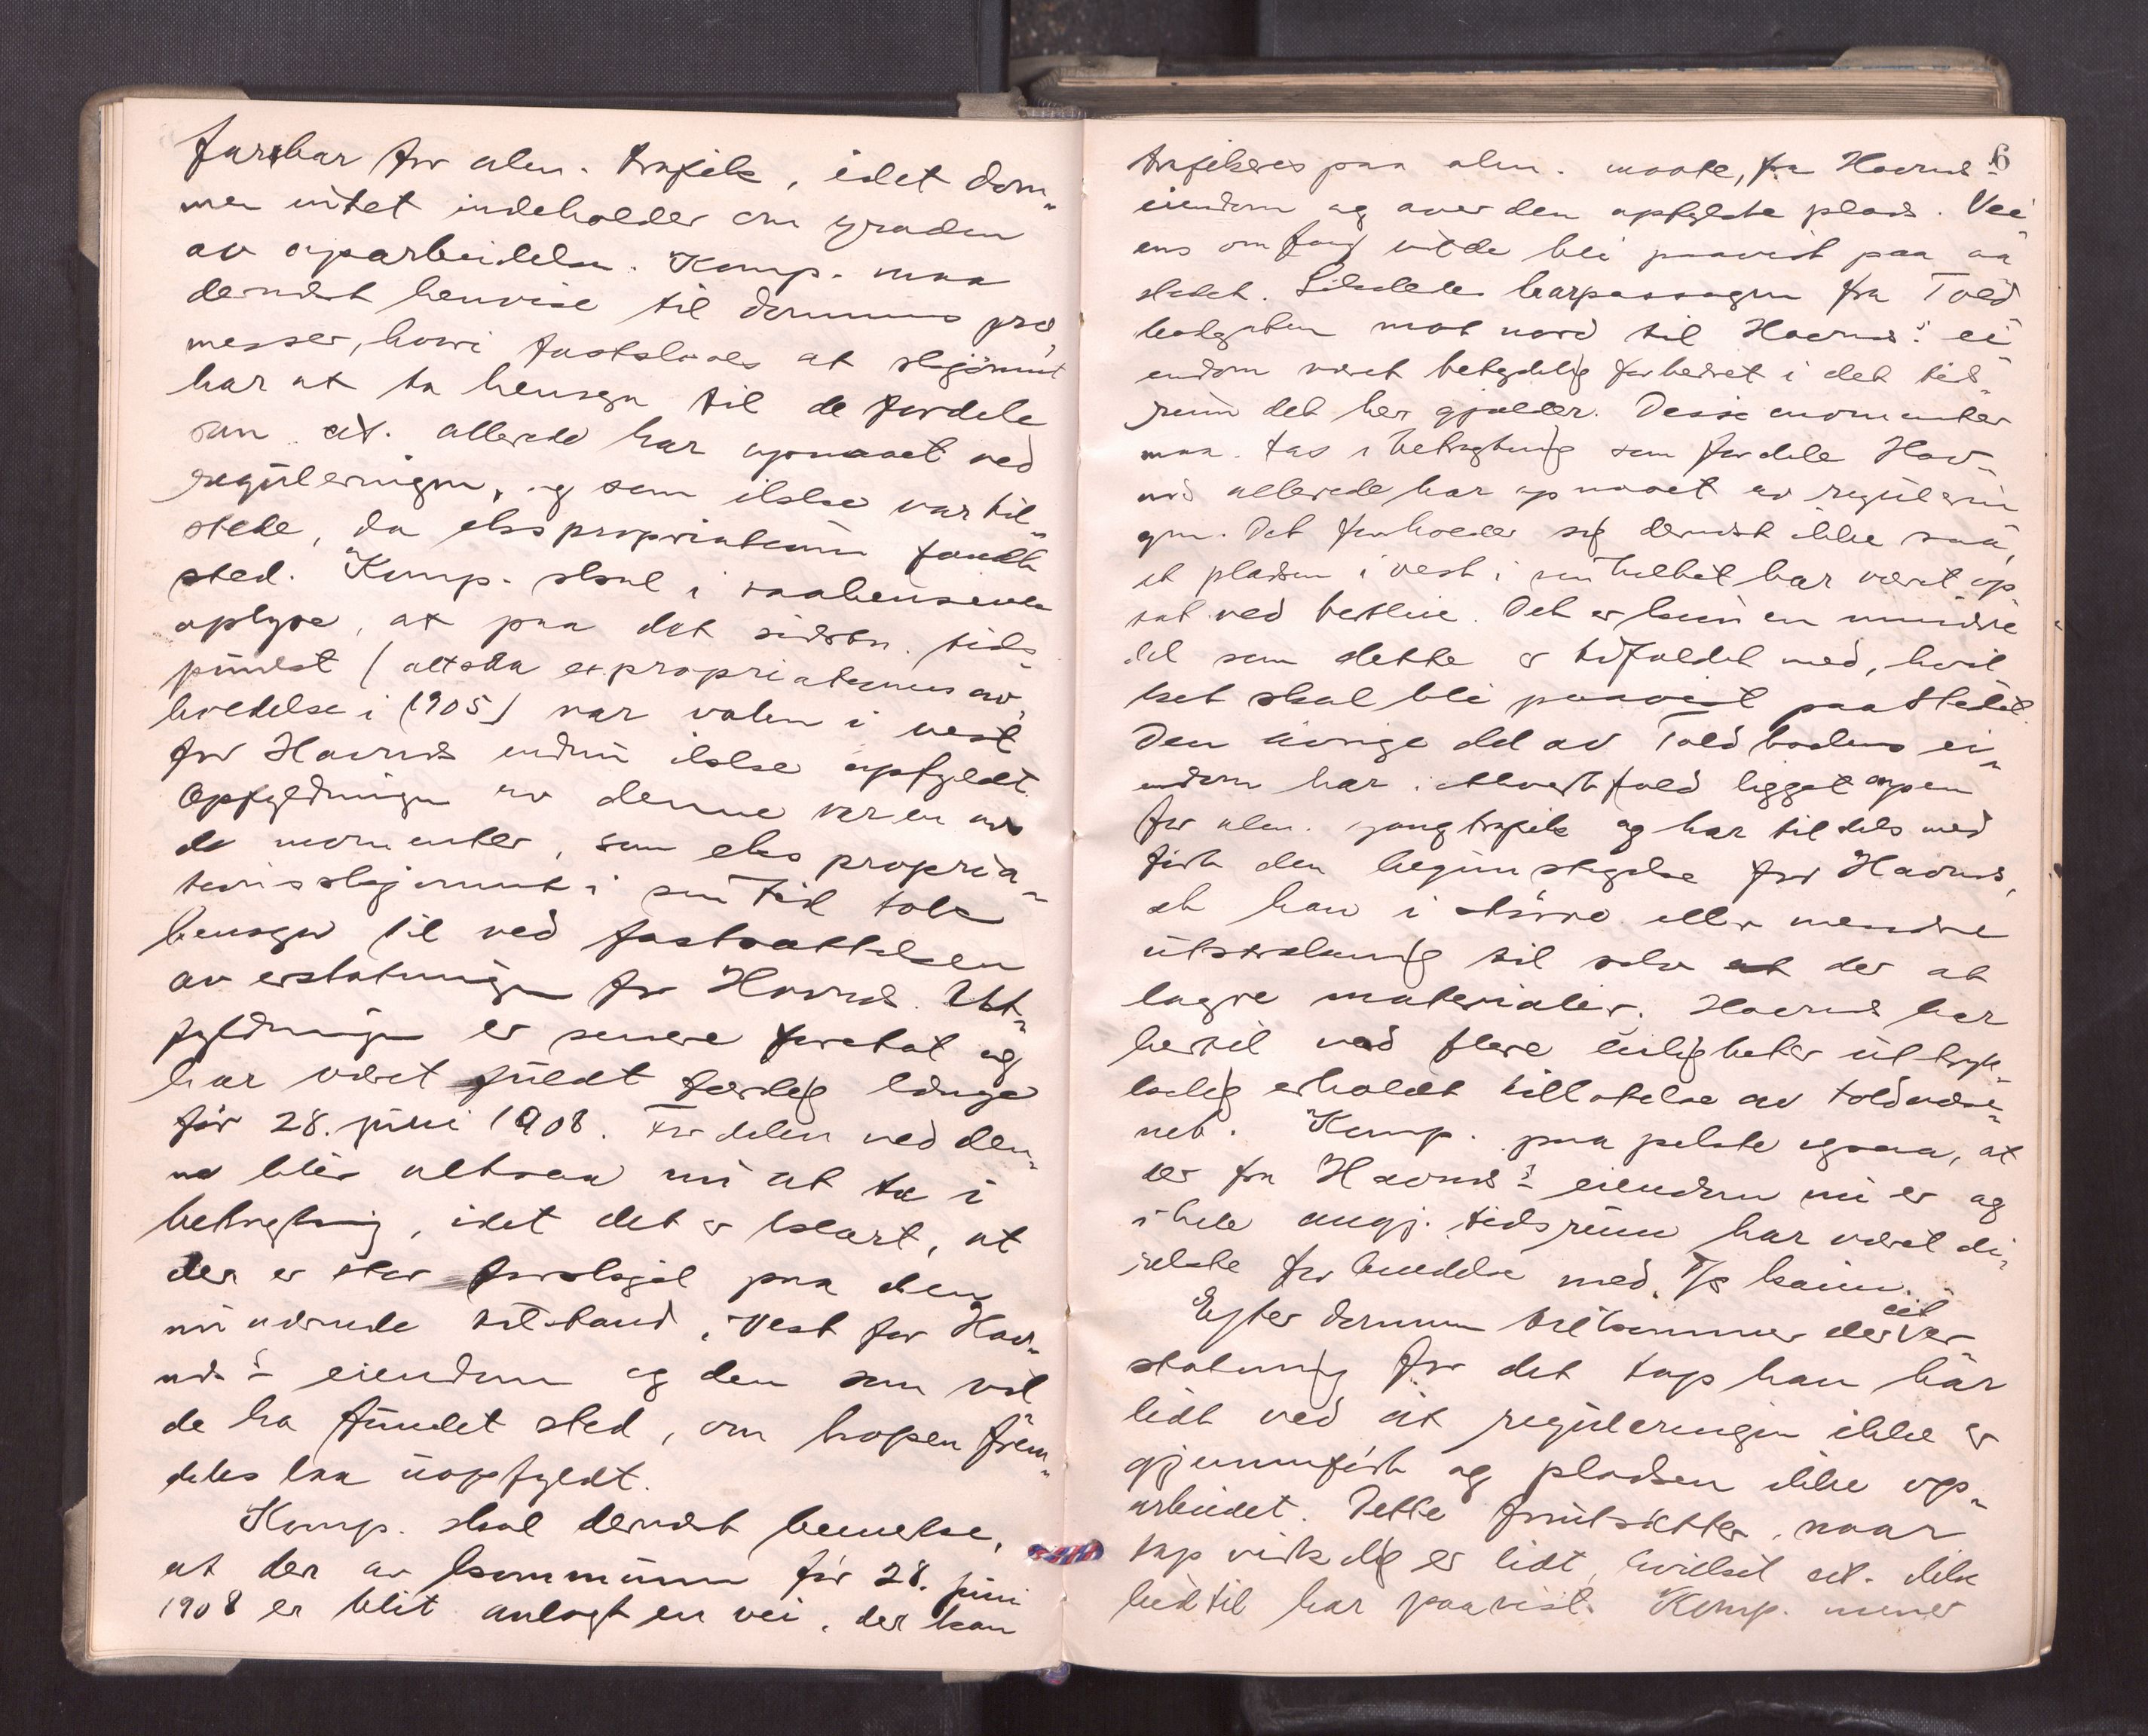 farbar for alm. trafik, idet dom-
men intet indeholder om graden
av oparbeidelse. Komp. maa
dernæst henvise til dommens præ-
messer, hvori fastslaaes at skjønnet
har at ta hensyn til de fordele
som cit. allerede har opnaaet ved
reguleringen, og som ikke var til-
stede, da ekspropriationen fandt
sted. Komp. skal i saahenseende
oplyse, at paa det sidstn. tids-
punkt (altsaa expropriationens av-
holdelse i 1905) var volen i vest
for Havnds endnu ikke opfyldt.
Opfyldningen av denne var en av
de momenter, som ekspropria-
tionsskjønnet i sin tid tok
hensyn til ved fastsættelsen
av erstatningen for Havnds. Ut-
fyldningen er senere foretat og
har været fuldt færdig længe
før 28. juni 1908. Fordelen ved den-
ne blir altsaa nu at ta i
betragtning, idet det er klart, at
der er stor forskjel paa den
nuværende tilstand i Vest for Hav-
nds's eiendom og den som vil-
de ha fundet sted, om hopen frem-
deles laa uopfyldt.
Komp. skal dernæst bemerke,
at der av kommunen før 28. juni
1908 er blit anlagt en vei, der kan
6
trafikeres paa alm. maate, fra Havnds's
eiendom og over den opfyldte plads. Vei-
ens omfang vilde bli paavist paa aa-
stedet. Likeledes har passagen fra Told-
bodgaten mot nord til Havnds's ei-
endom været betydelig forbedret i det tids-
rum det her gjælder. Disse momenter
maa tas i betragtning som fordele Hav-
nds allerede har opnaaet av regulerin-
gen. Det forholder sig dernæst ikke saa,
at pladsen i vest i sin helhet har været op-
tat ved bertleie. Det er kun en mindre
del som dette er tilfældet med, hvil-
ket skal bli paavist paa Stedet.
Den øvrige del av Toldbodens ei-
endom har i ethvert fald ligget open
for alm. gangtrafik og har tildels med-
ført den begunstigelse for Havnds,
at han i større eller mindre
utstrækning til selv at der at
lagre materialier. Havnds har
hertil ved flere leiligheter uttryk-
kelig erholdt tillatelse av toldvæse-
net. Komp. paapekte ogsaa, at
der fra Havnds's eiendom nu er og
i hele angj. tidsrum har været di-
rekte forbindelse med T/s kaien.
Efter dommen tilkommer der cit. er-
statning for det tap han har
lidt ved at reguleringen ikke er
gjennemført og pladsen ikke op-
arbeidet. Dette forutsætter, naar
tap virkelig er lidt, hvilket cit. ikke
hidtil har paavist. Komp. mener